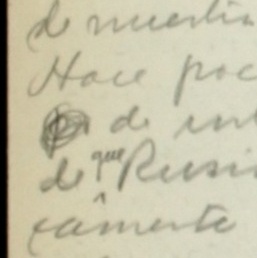 de nuestra
Hace poc
de int
de que Rusi
camente